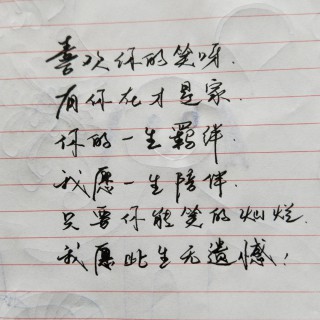 喜欢你的笑呀.
有你在才是家.
你的一生羁绊.
我愿一生陪伴.
只要你能笑的灿烂.
我愿此生无遗憾!